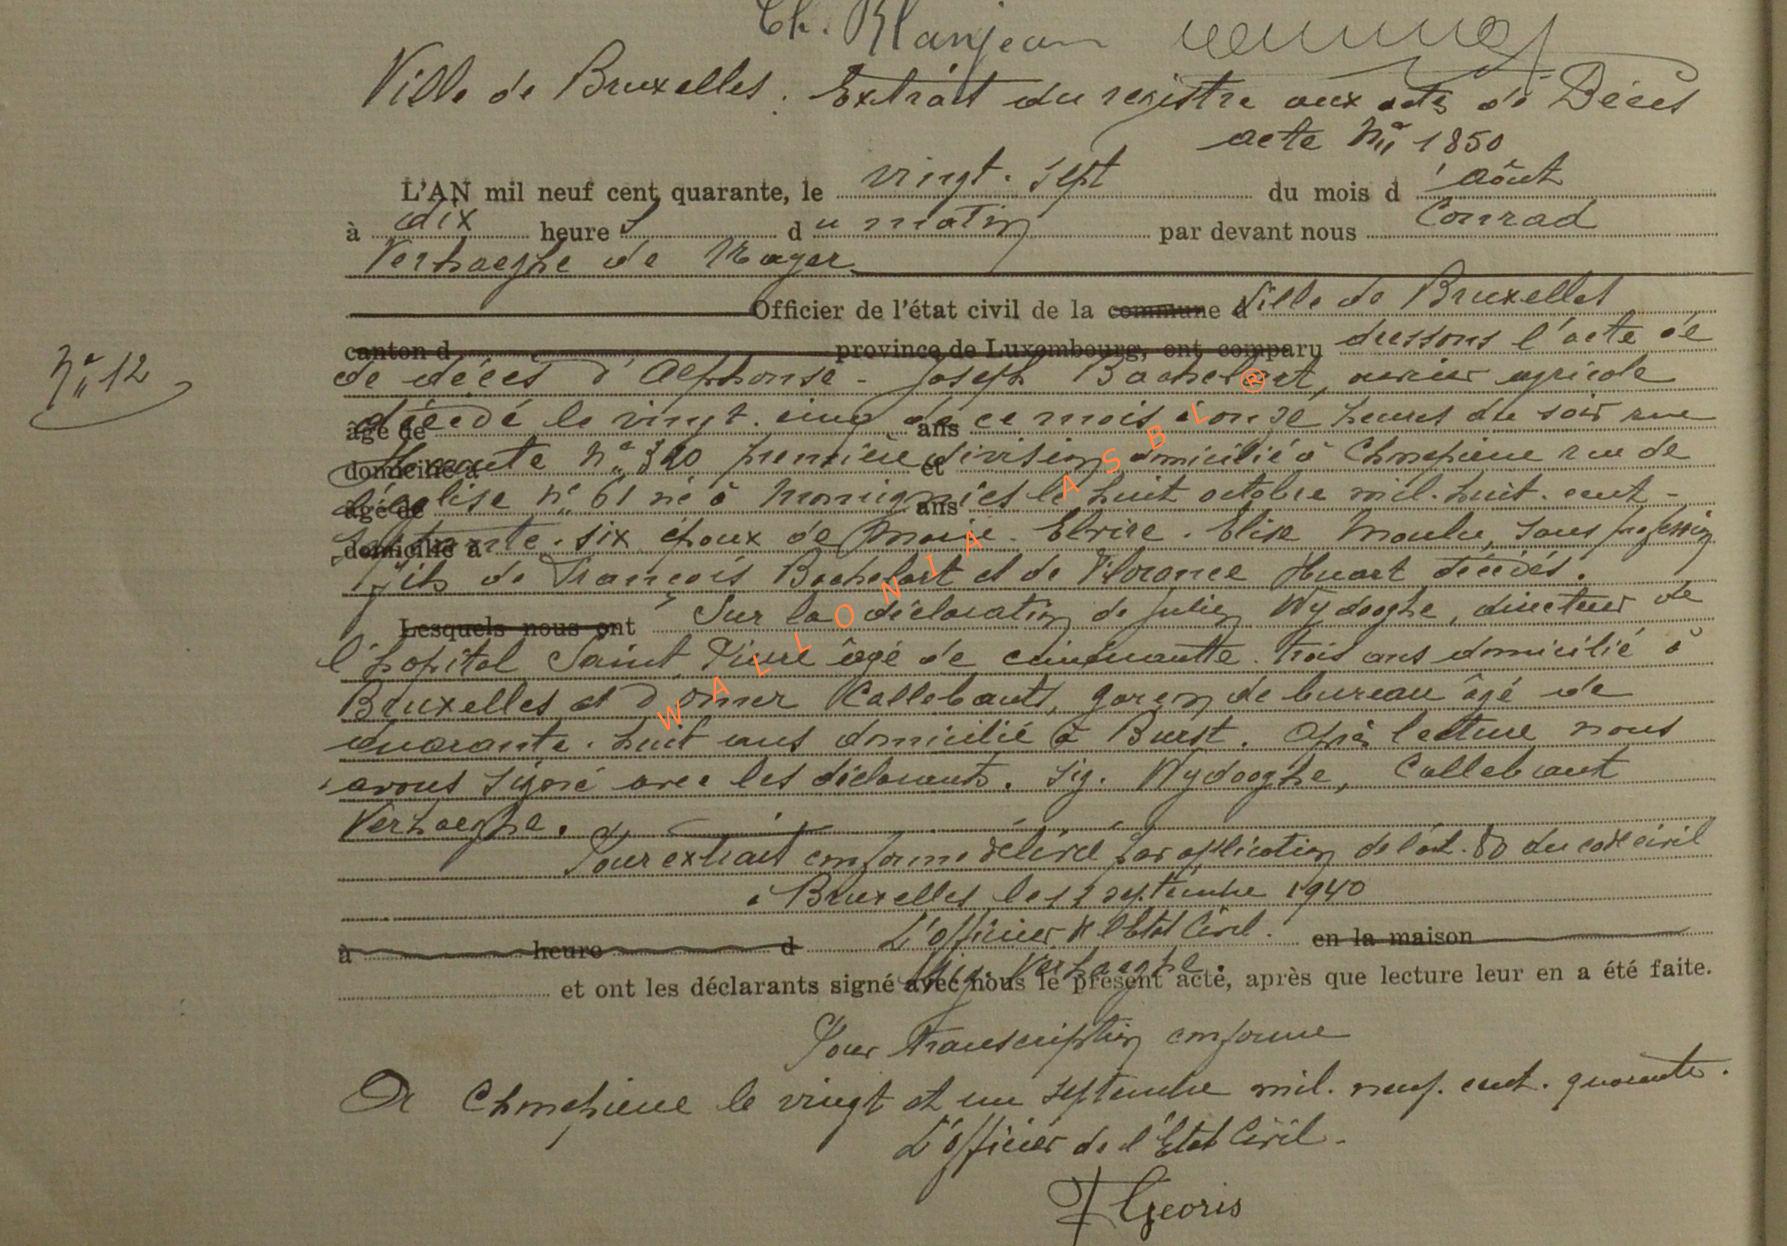 Th. Blanjean
Ville de Bruxelles. Extrait du registre aux actes de Décès
acte No 1850
L'AN mil neuf cent quarante, le vingt. sept du mois d'août
à dix heures du matin par devant nous Conrad
Verhaeghe de Nayer
Officier de l'état civil de la commune d Ville de Bruxelles
canton d province de Luxembourg, ont comparu dressons l'acte de
No 12
de décès d'Alphonse - Joseph Bachelart, ouvrier agricole
âgé de ans décédé le vingt. cinq de ce mois à onze heures du soir rue
domicilié à et Haute No 320 première division domicilié à Champlon rue de
âgé de ans l'église no 61 né à Momignies le huit octobre mil. huit. cent -
domicilié à six époux de Marie. Elvire. Elise sans profession
fils de François Bachelart et de Florence Huart décédés.
Lesquels nous ont Sur la déclaration de Julien Wydooghe, directeur de
l'hopital Saint Pierre âgé de cinquante. trois ans domicilié à
Bruxelles et d'Omer Callebaut, garçon de bureau âgé de
quarante. huit ans domicilié à Burst. Après lecture nous
avons signé avec les déclarants. Sig. Wydooghe, Callebaut
Verhaeghe.
Pour extrait conforme délivré par application de l'art. 80 du code civil
Bruxelles le 12 septembre 1940
L'Officier de l'Etat Civil.
à heure d en la maison
Sig. Verhaeghe.
et ont les déclarants signé avec nous le présent acte, après que lecture leur en a été faite.
Pour transcription conforme
A le vingt et un septembre mil. neuf. cent. quarante.
L'Officier de l'Etat Civil.
F Georis
WALLONIA ASBL ®